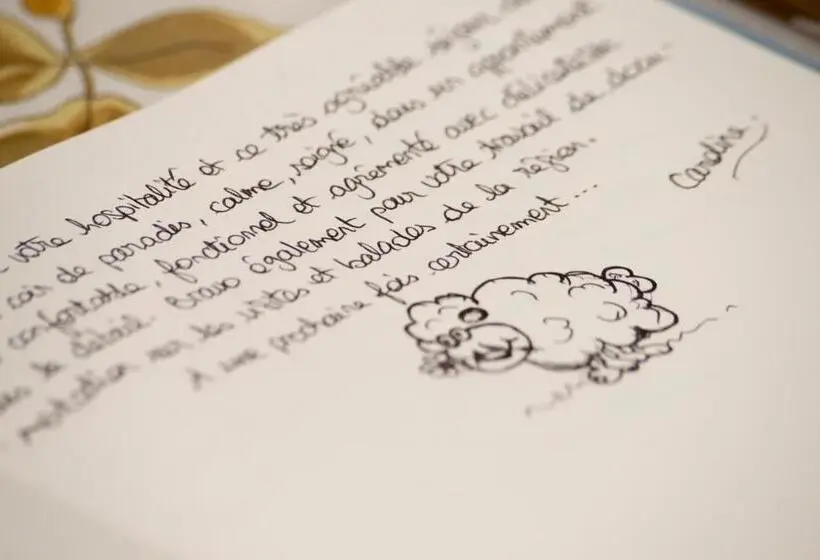 votre hospitalité et ce très agréable séjour
coin de paradis, calme, soigné, dans un appartement
confortable, fonctionnel et agrémenté avec délicatesse
le détail. Bravo également pour votre travail de docu-
mentation sur les visites et balades de la région.
A une prochaine fois certainement...
Caroline.